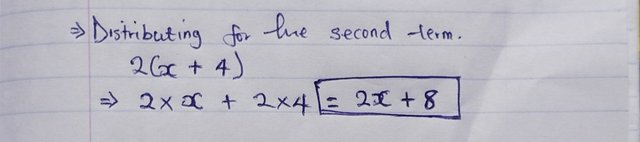 ⇒ Distributing for the second term.
2(x + 4)
⇒ 2 × x + 2×4 = 2x + 8